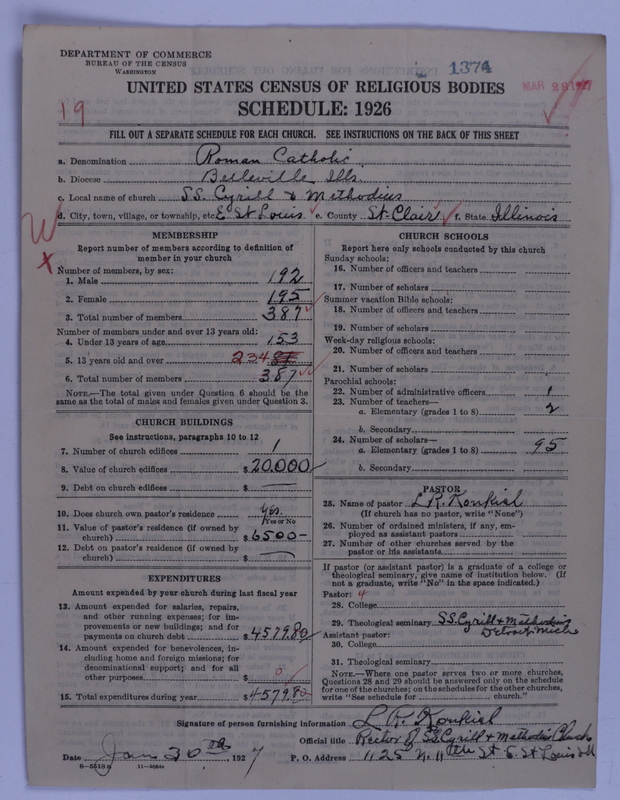 DEPARTMENT OF COMMERCE
BUREAU OF THE CENSUS
WASHINGTON
1374
MAR 2 1927
UNITED STATES CENSUS OF RELIGIOUS BODIES
SCHEDULE: 1926
19
FILL OUT A SEPARATE SCHEDULE FOR EACH CHURCH. SEE INSTRUCTIONS ON THE BACK OF THIS SHEET
a. Denomination Roman Catholic
b. Diocese Belleville Ills.
c. Local name of church S.S. Cyrill & Methodius
d. City, town, village, or township, etc. E. St Louis e. County St. Clair f. State Illinois
W
x
MEMBERSHIP
Report number of members according to definition of member in your church
Number of members, by sex:
1. Male 192
2. Female 195
3. Total number of members 387
Number of members under and over 13 years old:
4. Under 13 years of age 153
5. 13 years old and over 234
6. Total number of members 387
NOTE.—The total given under Question 6 should be the same as the total of males and females given under Question 3.
CHURCH BUILDINGS
See instructions, paragraphs 10 to 12
7. Number of church edifices 1
8. Value of church edifices $20,000
9. Debt on church edifices $ —
10. Does church own pastor's residence Yes.
Yes or No
11. Value of pastor's residence (if owned by
church) $6500-
12. Debt on pastor's residence (if owned by
church) $ —
EXPENDITURES
Amount expended by your church during last fiscal year
13. Amount expended for salaries, repairs,
and other running expenses; for im-
provements or new buildings; and for
payments on church debt $4579.80
14. Amount expended for benevolences, in-
cluding home and foreign missions; for
denominational support; and for all
other purposes $ 0
15. Total expenditures during year $4579.80
CHURCH SCHOOLS
Report here only schools conducted by this church
Sunday schools:
16. Number of officers and teachers
17. Number of scholars
Summer vacation Bible schools:
18. Number of officers and teachers
19. Number of scholars
Week-day religious schools:
20. Number of officers and teachers
21. Number of scholars
Parochial schools:
22. Number of administrative officers 1
23. Number of teachers—
a. Elementary (grades 1 to 8) 2
b. Secondary
24. Number of scholars—
a. Elementary (grades 1 to 8) 95
b. Secondary
PASTOR
25. Name of pastor L. R. Konkiel
(If church has no pastor, write "None")
26. Number of ordained ministers, if any, em-
ployed as assistant pastors
27. Number of other churches served by the
pastor or his assistants
If pastor (or assistant pastor) is a graduate of a college or
theological seminary, give name of institution below. (If
not a graduate, write "No" in the space indicated.)
Pastor: 4
28. College
29. Theological seminary SS. Cyrill & Methodius
Detroit Mich
Assistant pastor:
30. College
31. Theological seminary
NOTE.—Where one pastor serves two or more churches,
Questions 28 and 29 should be answered only on the schedule
for one of the churches; on the schedules for the other churches,
write "See schedule for church."
Signature of person furnishing information L. R. Konkiel
Official title Rector of SS Cyrill & Methodius Church
Date Jan 30th, 1927 P. O. Address 1125 N. 11th St E. St Louis Ill
8—5518a 11—9584